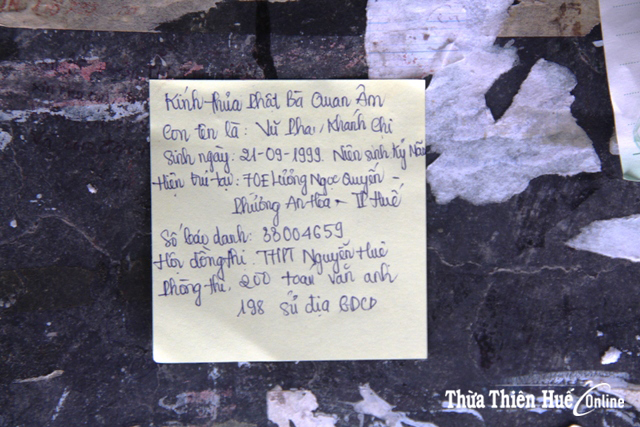 Kính thưa Phật Bà Quan Âm
Con tên là: Vũ Khánh Chi
Sinh ngày: 21-09-1999 Niên sinh Kỷ Mão
Hiện trú tại: 70E Lương Ngọc Quyến -
Phường An Hòa - TP Huế
Số báo danh: 33004659
Hội đồng thi: THPT Nguyễn Huệ
Phòng thi: 200 toán văn anh
198 sử địa GDCD
Thừa Thiên Huế Online